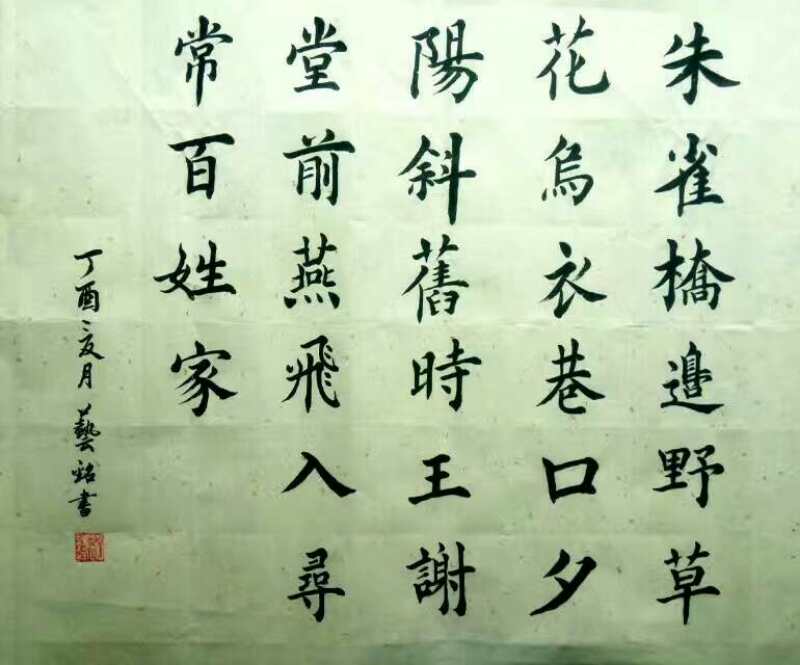 朱雀橋邊野草
花烏衣巷口夕
陽斜舊時王謝
堂前燕飛入尋
常百姓家
丁酉亥月藝銘書